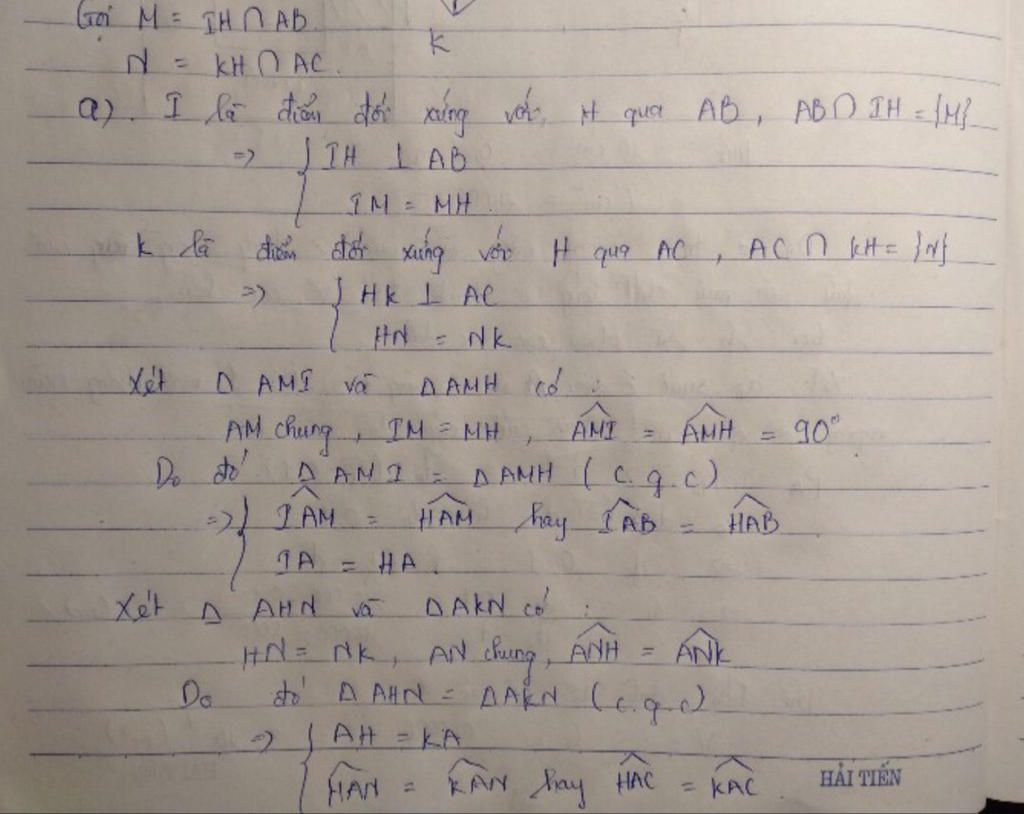 Gọi M = IH ∩ AB.
K
N = KH ∩ AC.
a). I là điểm đối xứng với H qua AB, AB ∩ IH = {M}
=> { IH ⊥ AB
IM = MH.
K là điểm đối xứng với H qua AC, AC ∩ KH = {N}
=> { HK ⊥ AC
HN = NK
Xét Δ AMI và Δ AMH có :
AM chung, IM = MH, \widehat{AMI} = \widehat{AMH} = 90°
Do đó Δ AMI = Δ AMH (c.g.c)
=> { \widehat{IAM} = \widehat{HAM} hay \widehat{IAB} = \widehat{HAB}
IA = HA.
Xét Δ AHN và Δ AKN có :
HN = NK, AN chung, \widehat{ANH} = \widehat{ANK}
Do đó Δ AHN = Δ AKN (c.g.c)
=> { AH = KA
\widehat{HAN} = \widehat{KAN} hay \widehat{HAC} = \widehat{KAC}.
HẢI TIẾN